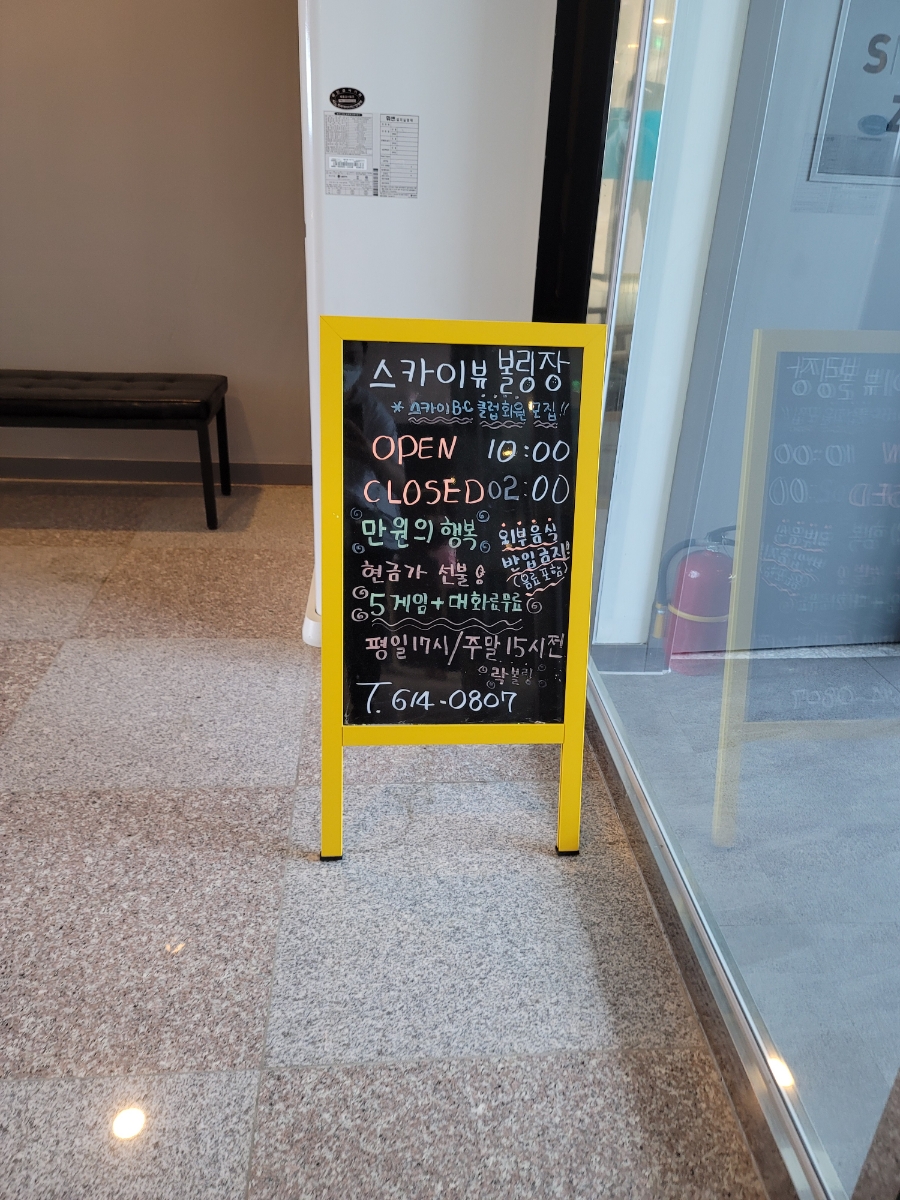 스카이뷰 볼링장
* 스카이B.C 클럽회원 모집!!
OPEN 10:00
CLOSED 02:00
만원의 행복
외부음식
반입금지!
(음료포함)
현금가 선불
5게임+대화료무료
평일17시/주말15시전
락볼링
T. 614-0807